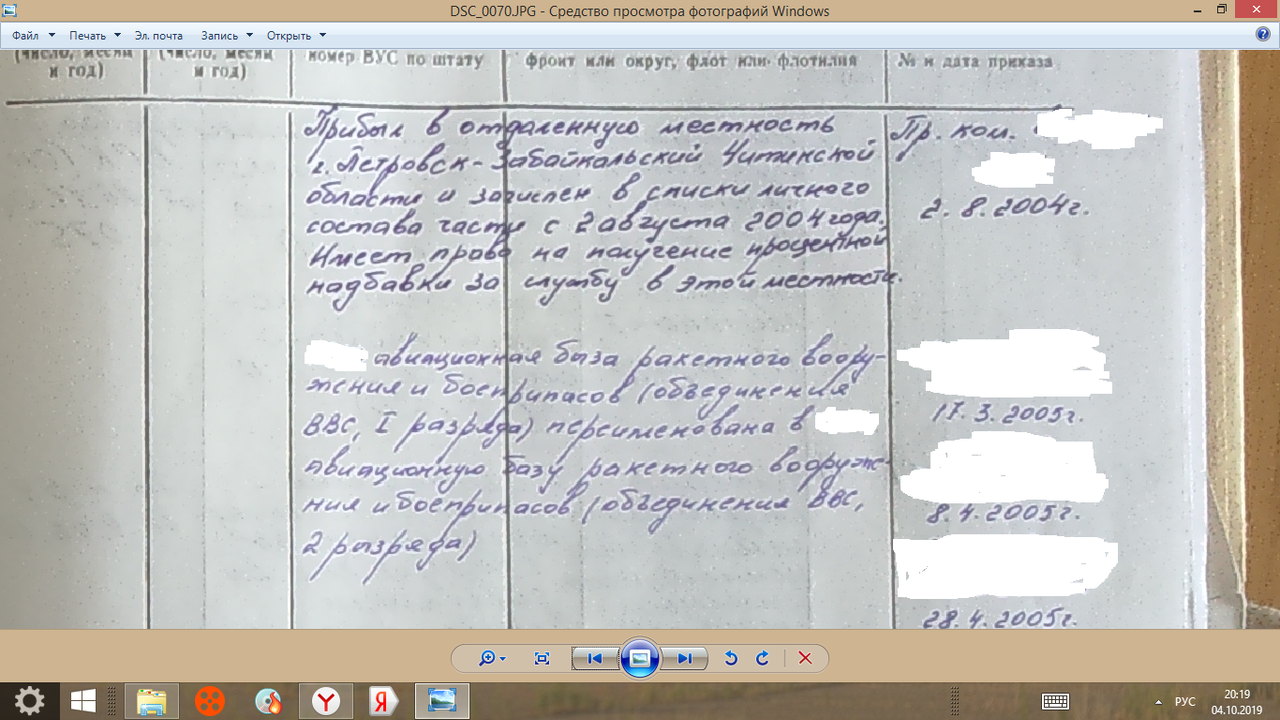 DSC_0070.JPG - Средство просмотра фотографий Windows
Файл Печать Эл. почта Запись Открыть
(число, месяц и год)
(число, месяц и год)
номер ВУС по штату
фронт или округ, флот или флотилия
№ и дата приказа
Прибыл в отдаленную местность
г. Петровск-Забайкальский Читинской
области и зачислен в списки личного
состава части с 2 августа 2004 года.
Имеет право на получение процентной
надбавки за службу в этой местности.
Пр. ком.
2. 8. 2004г.
авиационная база ракетного воору-
жения и боеприпасов (объединения
ВВС, I разряда) переименована в
авиационную базу ракетного вооруже-
ния и боеприпасов (объединения ВВС,
2 разряда)
17. 3. 2005г.
8. 4. 2005г.
28. 4. 2005г.
РУС
20:19
04.10.2019